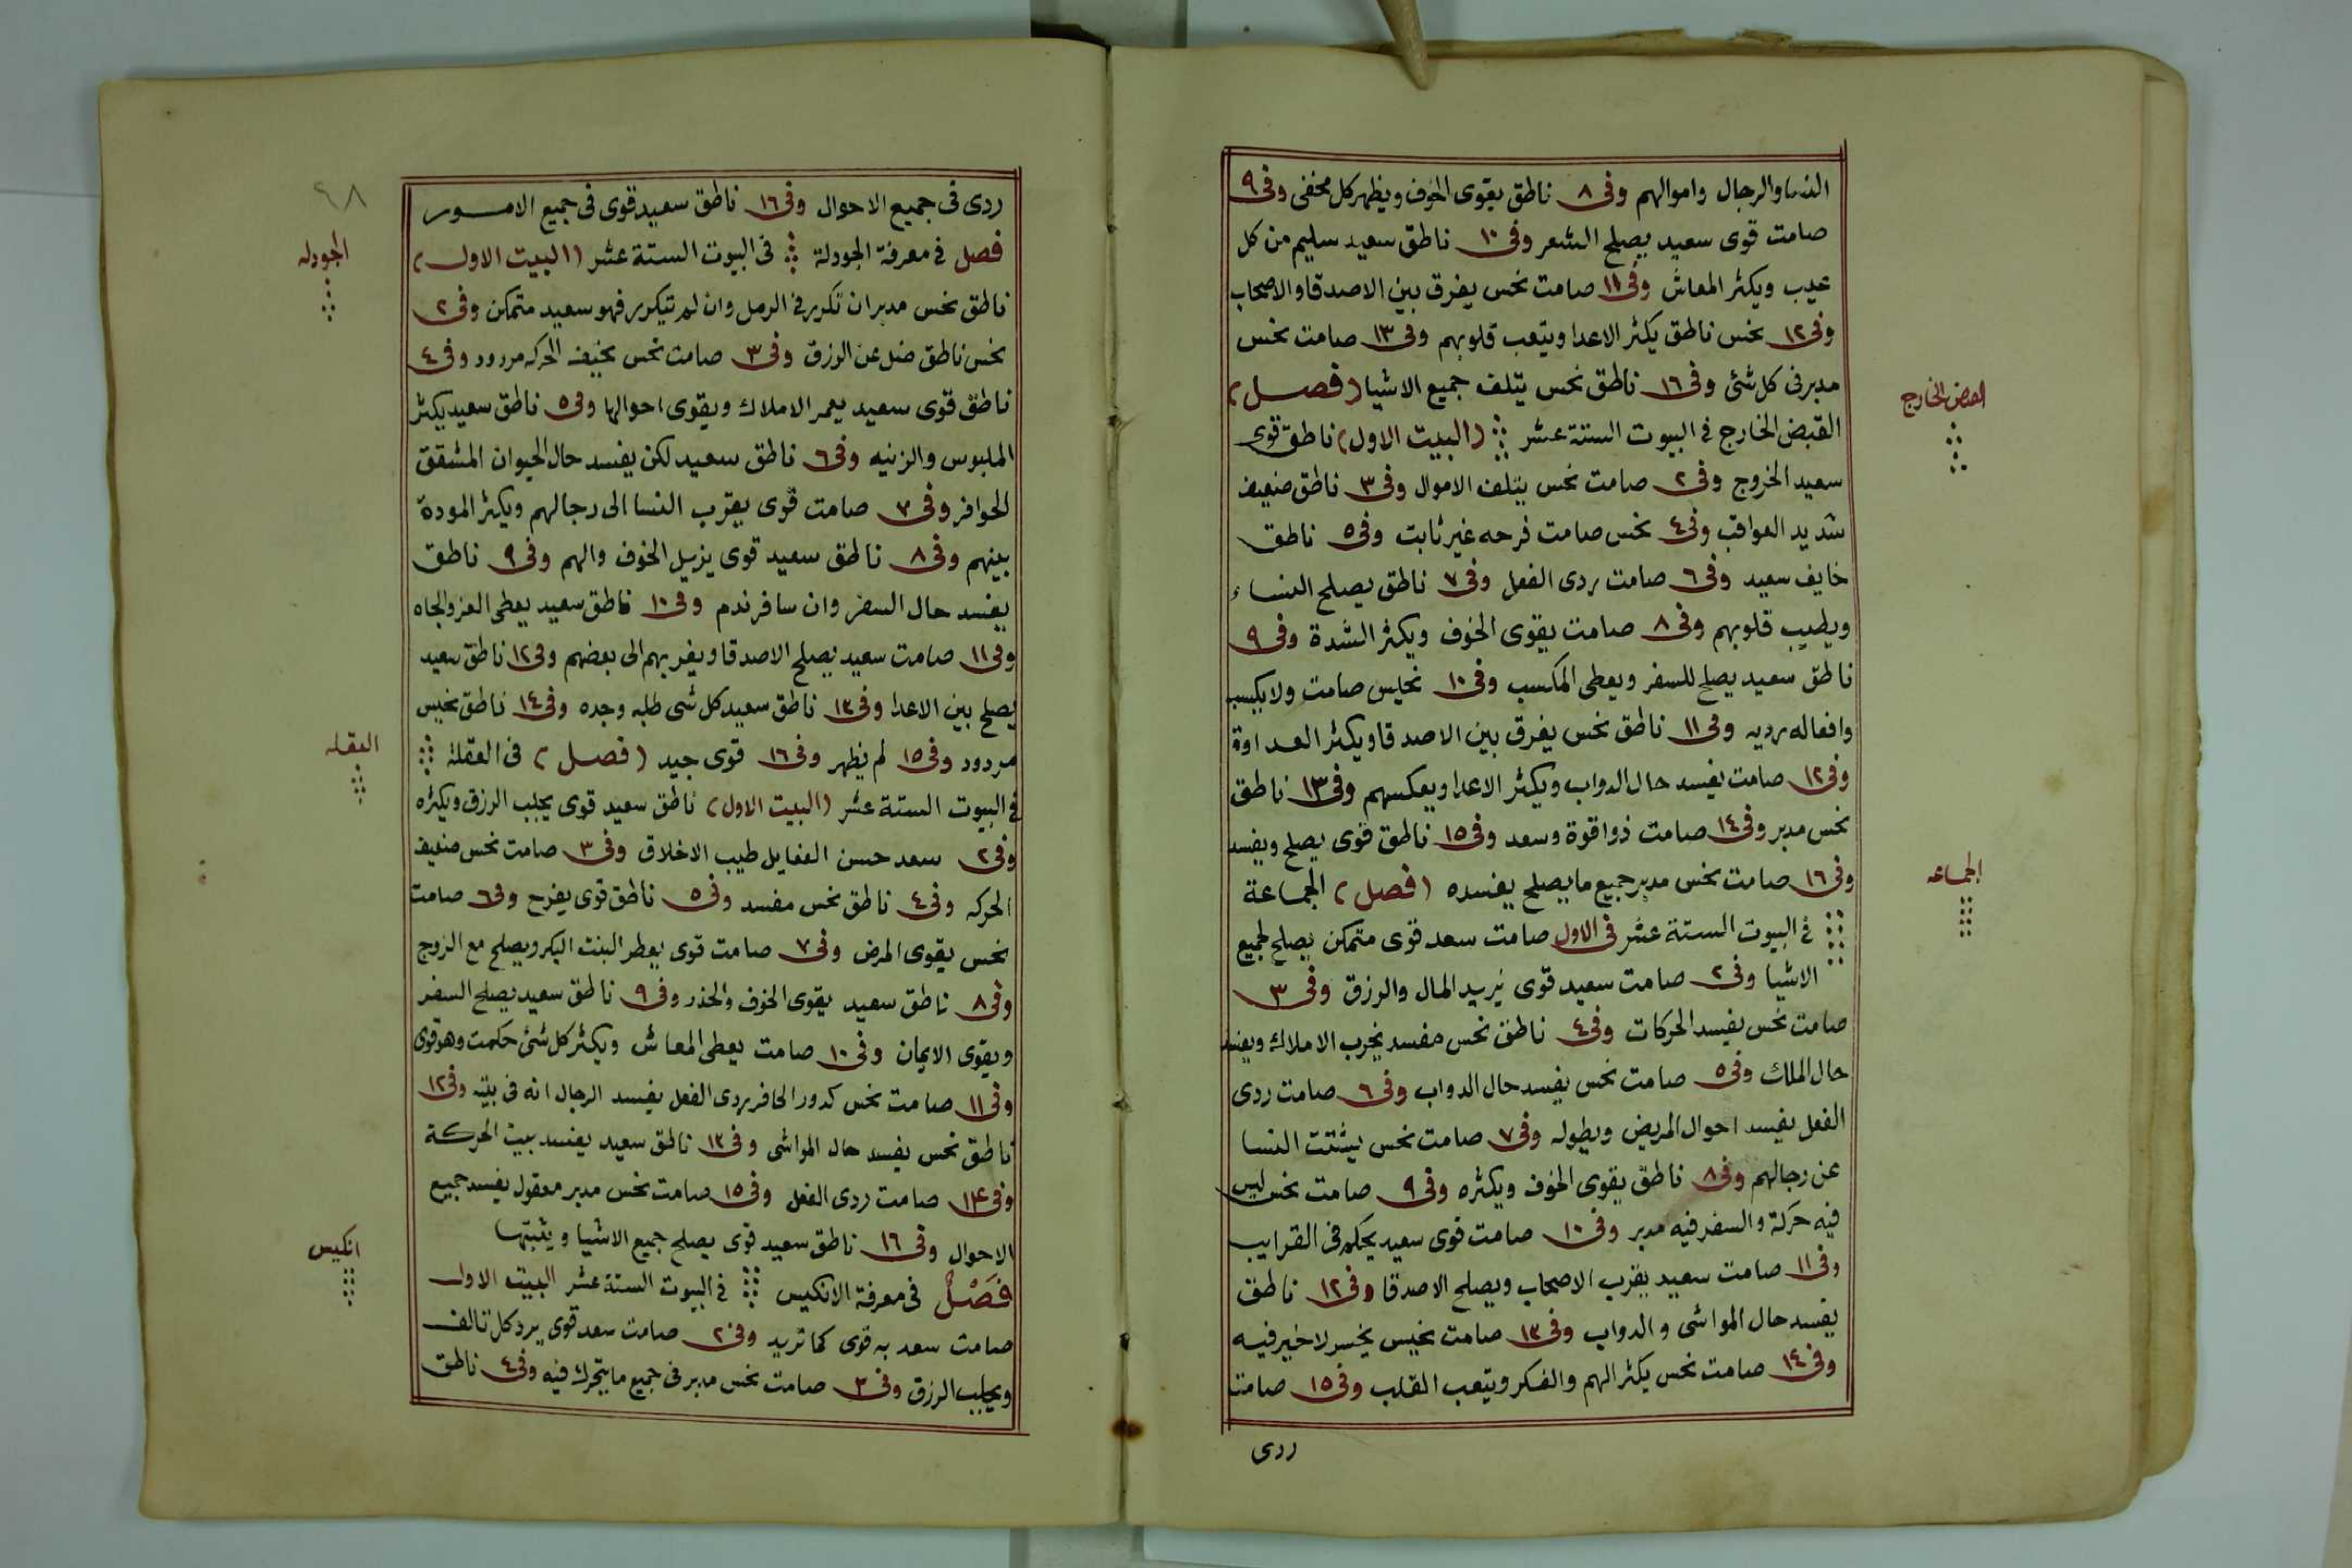 النسا والرجال واموالهم وفى ٨ ناطق يقوى الخوف ويظهر كل مخفى وفى ٩
صامت قوى سعيد يصلح الشعر وفى ١٠ ناطق سعيد سليم من كل
عيب ويكثر المعاش وفى ١١ صامت نحس يفرق بين الاصدقا والاصحاب
وفى ١٢ نحس ناطق يكثر الاعدا ويتعب قلوبهم وفى ١٣ صامت نحس
مدبر فى كل شئ وفى ١٦ ناطق نحس يتلف جميع الاشيا (فصل)
القبض الخارج
القبض الخارج فى البيوت الستة عشر (البيت الاول) ناطق قوى
سعيد الخروج وفى ٢ صامت نحس يتلف الاموال وفى ٣ ناطق ضعيف
شديد العواقب وفى ٤ نحس صامت فرحه غير ثابت وفى ٥ ناطق
خايف سعيد وفى ٦ صامت ردى الفعل وفى ٧ ناطق يصلح النساء
ويطيب قلوبهم وفى ٨ صامت يقوى الخوف ويكثر الشدة وفى ٩
ناطق سعيد يصلح للسفر ويعطى المكسب وفى ١٠ نحيس صامت ولا يكسب
وافعاله رديه وفى ١١ ناطق نحس يفرق بين الاصدقا ويكثر العداوة
وفى ١٢ صامت يفسد حال الدواب ويكثر الاعدا ويعكسهم وفى ١٣ ناطق
نحس مدبر وفى ١٤ صامت ذوا قوة وسعد وفى ١٥ ناطق قوى يصلح ويفسد
وفى ١٦ صامت نحس مدبر جميع ما يصلح يفسده (فصل) الجماعة
الجماعه
فى البيوت الستة عشر فى الاول صامت سعد قوى متمكن يصلح لجميع
الاشيا وفى ٢ صامت سعيد قوى يزيد المال والرزق وفى ٣
صامت نحس يفسد الحركات وفى ٤ ناطق نحس مفسد يخرب الاملاك ويفسد
حال الملك وفى ٥ صامت نحس يفسد حال الدواب وفى ٦ صامت ردى
الفعل يفسد احوال المريض ويطوله وفى ٧ صامت نحس يشتت النسا
عن رجالهم وفى ٨ ناطق يقوى الخوف ويكثره وفى ٩ صامت نحس ليس
فيه حركة والسفر فيه مدبر وفى ١٠ صامت قوى سعيد يحكم فى القرايب
وفى ١١ صامت سعيد يقرب الاصحاب ويصلح الاصدقا وفى ١٢ ناطق
يفسد حال المواشى والدواب وفى ١٣ صامت نحيس يخسر لا خير فيه
وفى ١٤ صامت نحس يكثر الهم والفكر ويتعب القلب وفى ١٥ صامت
ردى
٤٨
ردى فى جميع الاحوال وفى ١٦ ناطق سعيد قوى فى جميع الامور
الجودله
فصل فى معرفة الجودلة فى البيوت الستة عشر (البيت الاول)
ناطق نحس مدبر ان تكرر فى الرمل وان لم يتكرر فهو سعيد متمكن وفى ٢
نحس ناطق ضل عن الرزق وفى ٣ صامت نحس نخيف الحركه مردود وفى ٤
ناطق قوى سعيد يعمر الاملاك ويقوى احوالها وفى ٥ ناطق سعيد يكثر
الملبوس والزينه وفى ٦ ناطق سعيد لكن يفسد حال الحيوان المشقق
الحوافر وفى ٧ صامت قوى يقرب النسا الى رجالهم ويكثر المودة
بينهم وفى ٨ ناطق سعيد قوى يزيل الخوف والهم وفى ٩ ناطق
يفسد حال السفر وان سافر ندم وفى ١٠ ناطق سعيد يعطى العز والجاه
وفى ١١ صامت سعيد يصلح الاصدقا ويقربهم الى بعضهم وفى ١٢ ناطق سعيد
يصلح بين الاعدا وفى ١٣ ناطق سعيد كل شى طلبه وجده وفى ١٤ ناطق نحيس
العقله
مردود وفى ١٥ لم يظهر وفى ١٦ قوى جيد (فصل) فى العقلة
فى البيوت الستة عشر (البيت الاول) ناطق سعيد قوى يجلب الرزق ويكثره
وفى ٢ سعد حسن الفعايل طيب الاخلاق وفى ٣ صامت نحس ضعيف
الحركه وفى ٤ ناطق نحس مفسد وفى ٥ ناطق قوى يفرح وفى ٦ صامت
نحس يقوى المرض وفى ٧ صامت قوى يعطر البنت البكر ويصلح مع الزوج
وفى ٨ ناطق سعيد يقوى الخوف والحذر وفى ٩ ناطق سعيد يصلح السفر
ويقوى الايمان وفى ١٠ صامت يعطى المعاش ويكثر كل شئ حكمت وهو قوى
وفى ١١ صامت نحس كدور الحافر ردى الفعل يفسد الرجال انه فى بيته وفى ١٢
ناطق نحس يفسد حال المواشى وفى ١٣ ناطق سعيد يفسد بيت الحركة
وفى ١٤ صامت ردى الفعل وفى ١٥ صامت نحس مدبر معقول يفسد جميع
الاحوال وفى ١٦ ناطق سعيد قوى يصلح جميع الاشيا ويثبتها
انكيس
فصل فى معرفة الانكيس فى البيوت الستة عشر البيت الاول
صامت سعد به قوى كما تريد وفى ٢ صامت سعد قوى يرد كل تالف
ويجلب الرزق وفى ٣ صامت نحس مدبر فى جميع ما يتحرك فيه وفى ٤ ناطق